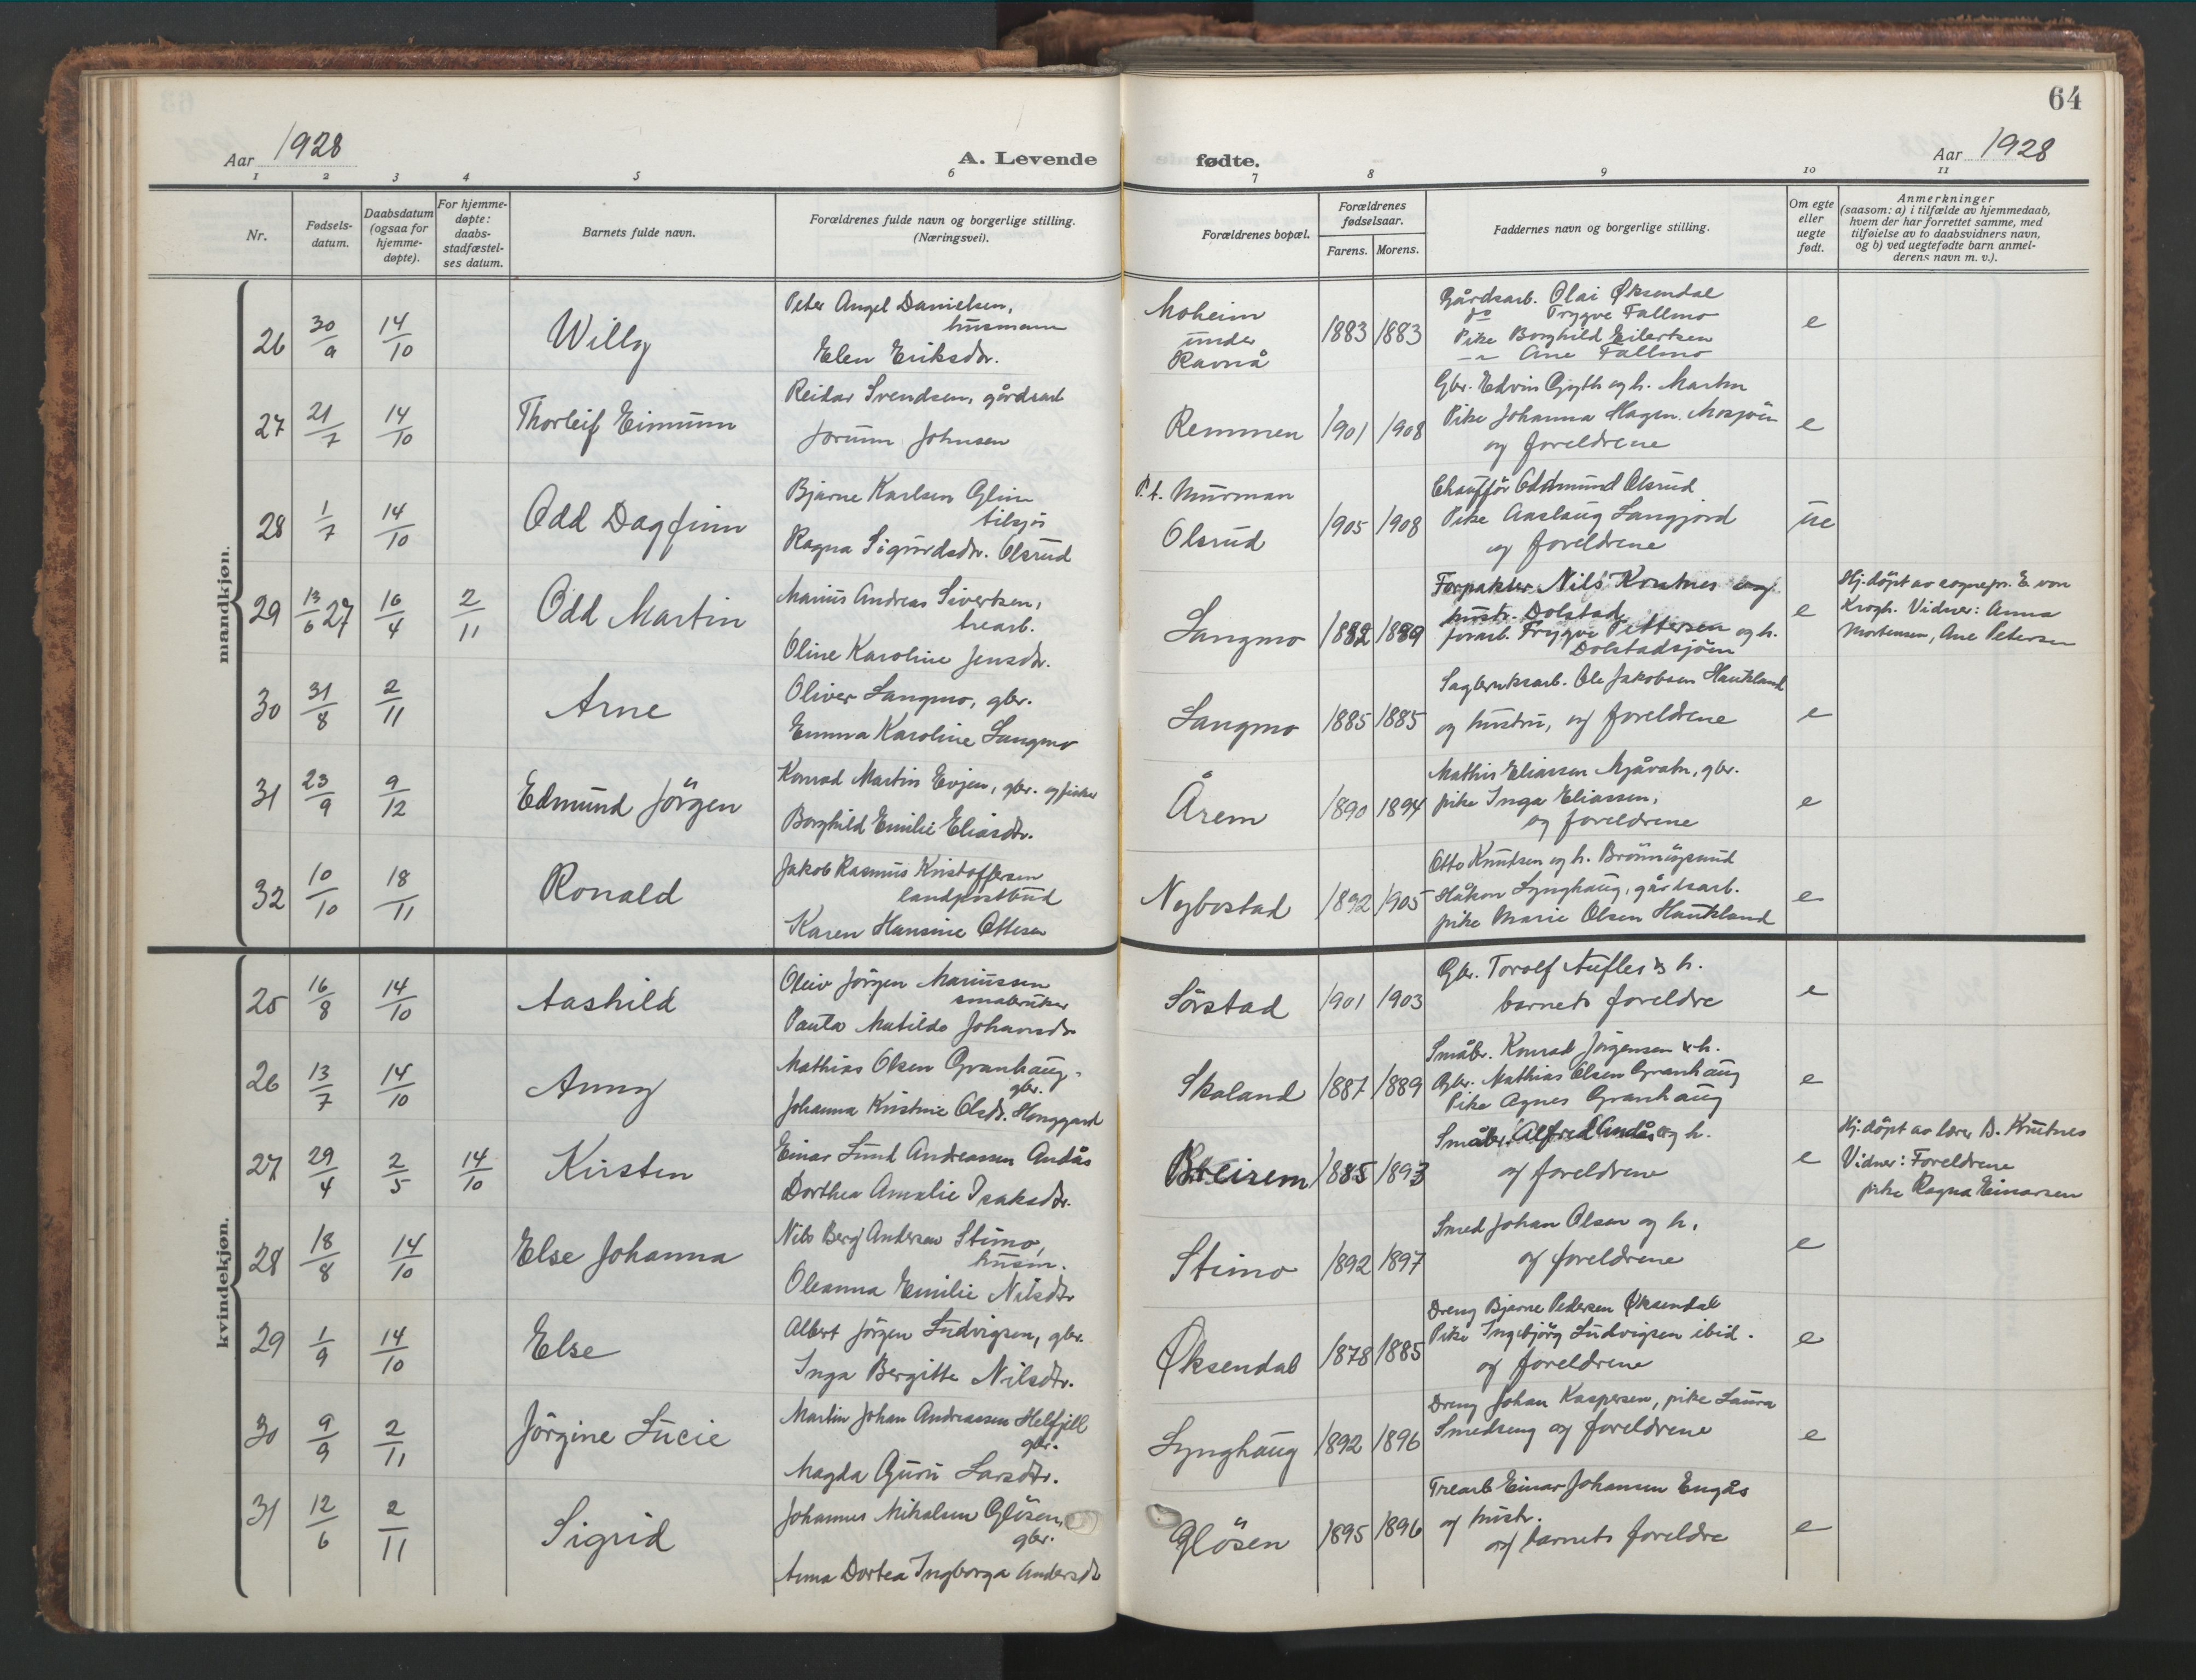 64
Aar 1928
A. Levende fødte.
Aar 1928
1 2 3 4 5 6 7 8 9 10 11
Nr.
Fødsels-
datum.
Daabsdatum
(ogsaa for
hjemme-
døpte).
For hjemme-
døpte:
daabs-
stadfæstel-
ses datum.
Barnets fulde navn.
Forældrenes fulde navn og borgerlige stilling.
(Næringsvei).
Forældrenes bopæl.
Forældrenes
fødselsaar.
Farens. Morens.
Faddernes navn og borgerlige stilling.
Om egte
eller
uegte
født.
Anmerkninger
(saasom: a) i tilfælde av hjemmedaab,
hvem der har forrettet samme, med
tilføielse av to daabsvidners navn,
og b) ved uegtefødte barn anmel-
derens navn m. v.).
mandkjøn.
26 30/9 14/10 Willy
Peter Angel Danielsen,
husmann
Elen Eriksdtr.
Moheim
under
Ravnå
1883 1883
Gårdsarb. Olai Øksendal
do Trygve Fallmo
Pike Borghild Eilertsen
-"- Ane Fallmo
e
27 21/7 14/10 Thorleif Eimunn
Reidar Svendsen, gårdsarb
Jorunn Johnsen
Remmen 1901 1908
Gbr. Edvin og h. Marten
Pike Johanna Hagen. Mosjöen
og foreldrene
e
28 1/7 14/10 Odd Dagfinn
Bjarne Karlsen Glim
tilsjös
Ragna Sigurdsdtr. Olsrud
P.t. Murman
Olsrud
1905 1908
Chaufför Oddmund Olsrud
Pike Aaslaug Langjord
og foreldrene
ue
29 13/6 27 16/4 2/11 Odd Martin
Marius Andreas Sivertsen,
trearb.
Oline Karoline Jensdtr.
Langmo 1882 1889
Forpakter Nils og
hustr. Dolstad
forarb. Trygve Pettersen og h.
Dolstadsjöen
e
Hj.döpt av sognepr. E. von
Krogh. Vidner: Anna
Mortensen, Ane Petersen
30 31/8 2/11 Arne
Oliver Langmo, gbr.
Emma Karoline Langmo
Langmo 1885 1885
Sagbruksarb. Ole Jakobsen Hautland
og hustru, og foreldrene
e
31 23/9 9/12 Edmund Jörgen
Konrad Martin Evjen, gbr. og fisker
Borghild Emilie Eliasdtr.
Årem 1890 1894
Mathis Eliassen Mjåvatn, gbr.
pike Inga Eliassen,
og foreldrene
e
32 10/10 18/11 Ronald
Jakob Rasmus Kristoffersen
landpostbud
Karen Hansine Ottesen
Nybostad 1892 1905
Otto Knutsen og h. Brönnöysund
Håkon Lynghaug, gårdsarb.
pike Marie Olsen Hautland
e
kvindekjøn.
25 16/8 14/10 Aashild
Oleiv Jörgen Mariussen
småbruker
Paula Matilde Johansdtr
Sörstad 1901 1903
Gbr. Torolf Aufles & h.
barnets foreldre
e
26 13/7 14/10 Anny
Mathias Olsen Granhaug,
gbr.
Johanna Kristine Olsdtr. Honggard
Skaland 1887 1889
Småbr. Konrad Jörgensen & h.
Gbr. Mathias Olsen Granhaug
Pike Agnes Granhaug
e
27 29/4 2/5 14/10 Kirsten
Einar Lund Andreassen Andås
Dorthea Amalie Isaksdtr.
Breirem 1885 1893
Småbr. Alfred Andås og h.
og foreldrene
e
Hj.döpt av lærer D. Knutnes
Vidner: Foreldrene
pike Ragna Einarsen
28 18/8 14/10 Else Johanna
Nils Berg Andersen Stimo,
husm.
Oleanna Emilie Nilsdtr
Stimo 1892 1897
Smed Johan Olsen og h.
og foreldrene
e
29 1/9 14/10 Else
Albert Jörgen Ludvigsen, gbr.
Inga Bergitte Nilsdtr.
Øksendal 1878 1885
Dreng Bjarne Pedersen Øksendal
Pike Ingebjörg Ludvigsen ibid.
og foreldrene
e
30 9/9 2/11 Jörgine Lucie
Martin Johan Andreassen Helfjell
gbr.
Magda Guru Larsdtr.
Lynghaug 1892 1896
Dreng Johan Kaspersen, pike Laura
Smedseng og foreldrene
e
31 12/6 2/11 Sigrid
Johannes Mikalsen Glösen,
gbr.
Anna Dortea Ingborga Andersdtr
Glösen 1895 1896
Trearb Einar Johansen Engås
og hustr.
og barnets foreldre
e